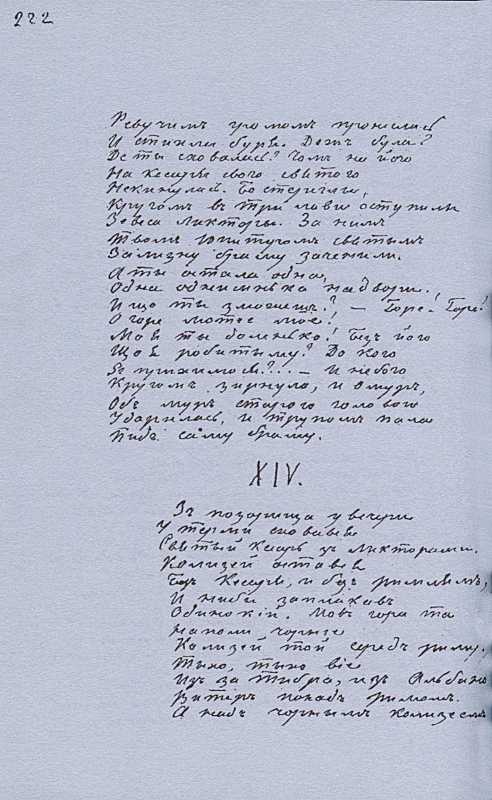 222
Ревучимъ громомъ пронеслась
И стихли бури. Де жъ була?
Де ты сховалась? Чомъ на його
На кесаря свого святого
Некинулась. Бо стерегли,
Кругомъ в три лавы оступыли
Зовса ликторы. За нимъ
Твоимъ Юпитеромъ святымъ
Зализну браму зачинили.
А ты остала одна,
Одна однисинька надвори.
И що ты зможешъ? — Горе! Горе!
О горе лютее мое!
Мои ты боженько! Безъ його
Що я робитыму? До кого
Я прихилюся?... — И небога
Кругомъ зирнула, и о муръ,
Объ муръ старого головою
Ударилась, и трупомъ пала
Пидъ саму браму.
XIV.
Зъ позорища у вечери
У терми сховався
Святый Кесарь зъ ликторами.
Колизей остався
Безъ Кесаря, и безъ римлянъ,
И ниби заплакавъ
Одинокій. Мовъ гора та
Наполи чорніе
Колизей той середъ риму.
Тыхо, тыхо віе
Изъ за Тибра, изъ Альбано
Витиръ понадъ римомъ.
А надъ чорнымъ колизеемъ